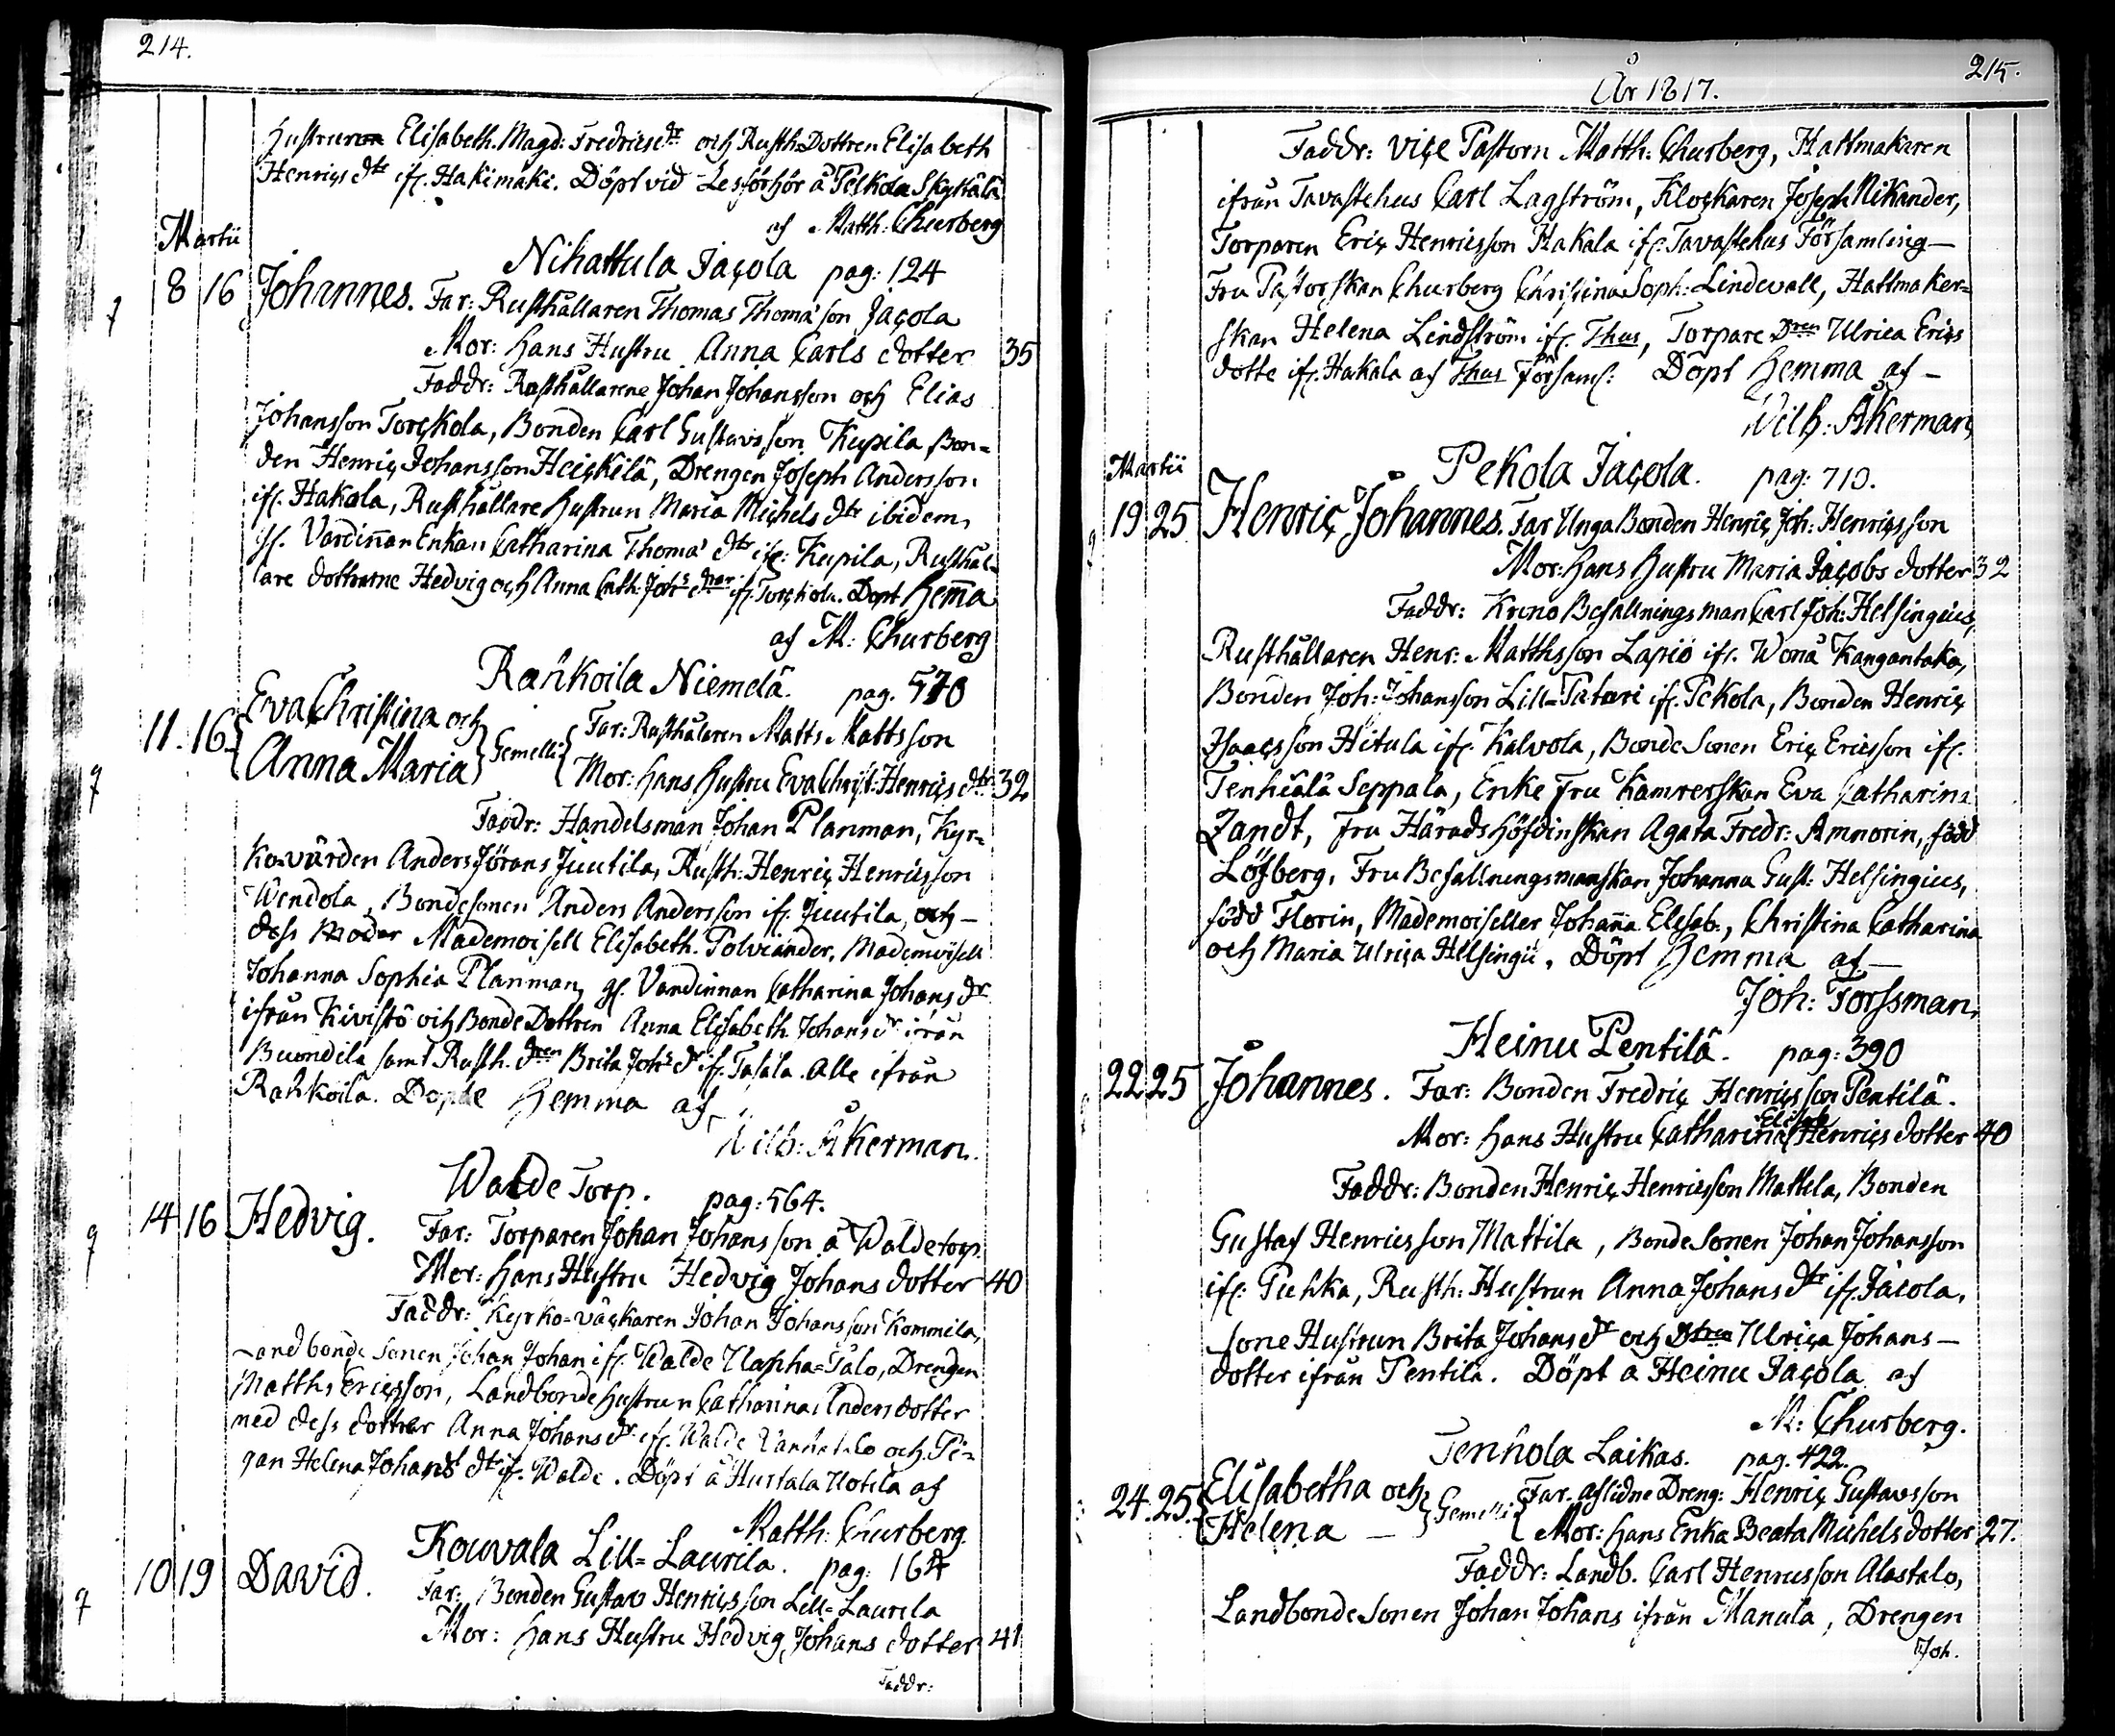 214.
Hustrurna Elisabeth. Magd: Fredricsdr och Rusth. Dottren Elisabeth
Henrics dtr ifr. Hakimäki. Döpt vid Läsförhör å Pelkola Skyttälä
af Matth: Churberg
Martii
Nihattula Jacola pag: 124
8 16 Johannes. Far: Rusthållaren Thomas Thomas son Jacola
Mor: Hans Hustru Anna Carls dotter 35
Faddr: Rusthållarene Johan Johansson och Elias
Johansson Torckola, Bonden Carl Gustavsson Kupila Bon=
den Henric Johansson Heickilä, Drengen Joseph Andersson
ifr. Hakala, Rusthållare Hustrun Maria Michels dtr ibidem,
gf. Värdinnan Enkan Catharina Thomas dtr ifr: Kupila, Rusthål=
lare döttrarne Hedvig och Anna Cath. Johs dnar ifr. Torckola. Döpt Hemma
af M: Churberg
Rahkoila Niemelä. pag. 570
11. 16. Eva Christina och
Anna Maria Gemelli Far: Rusthålaren Matts Mattsson
Mor: Hans Hustru Eva Christ: Henrics dtr 32
Faddr: Handelsman Johan Planman, Kyr=
kovärden Anders Jörans Juutila, Rusth: Henric Henricsson
Wendola, Bondesonen Anders Andersson ifr. Juutila, och –
dess Moder Mademoisell Elisabeth. Polviander, Mademoisell
Johanna Sophia Planman, gf. Värdinnan Catharina Johans dr
ifrån Kivistö och Bonde Dottren Anna Elisabeth Johans dr ifrån
Buondila samt Rusth. dren Brita Johs dr if. Tasala. Alla ifrån
Rahkoila. Döpte Hemma af
Wilh: Åkerman.
Walde Torp. pag: 564.
14 16 Hedvig. Far: Torparen Johan Johansson å Waldetorp.
Mor: Hans Hustru Hedvig Johans dotter 40
Faddr: Kyrko=väckaren Johan Johansson Kommila,
Landbonde Sonen Johan Johan ifr. Walde Ulapha=Talo, Drengen
Matths Ericsson, Landbonde Hustrun Catharina Anders dotter
med dess dottrar Anna Johans dr ifr. Walde Vanhatalo och Pi=
gan Helena Johans dtr if. Walde. Döpt å Hustala Uotila af
Matth: Churberg.
Kouvala Lill=Laurila. pag: 164
10 19 David. Far: Bonden Gustav Henricsson Lill=Laurila
Mor: Hans Hustru Hedvig Johans dotter 41
Faddr:
År 1817. 215.
Faddr: Vice Pastorn Matth: Churberg, Hattmakaren
ifrån Tavastehus Carl Lagström, Klockaren Joseph Nikander,
Torparen Eric Henricsson Hakala ifr. Tavastehus Församling –
Fru Pastorskan Churberg Christina Soph: Lindevall, Hattmaker=
skan Helena Lindström ifr. Thus, Torpare Dren Ulrica Erics
dotte ifr. Hakala af Thus Församl: Döpt Hemma af –
Wilh: Åkerman,
Martii
Pekola Jacola. pag: 710.
19 25 Henric Johannes. Far Unga Bonden Henric Joh: Henricsson
Mor: Hans Hustru Maria Jacobs dotter 32
Faddr: Krono Befallningsman Carl Joh: Helsingius,
Rusthållaren Henr: Matthsson Lapio ifr. Wonå Kangantaka,
Bonden Joh: Johansson Lill=Patari ifr. Pekola, Bonden Henric
Isaacsson Hitula ifr. Kalvola, Bonde Sonen Eric Ericsson ifr.
Tenhiälä Seppala, Enke Fru Kamrerskan Eva Catharina
Zandt, Fru Häradshöfdinskan Agata Fredr: Amnorin, född
Löfberg. Fru Befallningsmanskan Johanna Gust: Helsingius,
född Florin, Mademoiseller Johanna Elisab., Christina Catharina
och Maria Ulrica Helsingii. Döpt Hemma af –
Joh: Forssman.
Heinu Pentilä. pag: 390
22 25 Johannes. Far: Bonden Fredric Henricsson Pentilä.
Elisab
Mor: Hans Hustru Catharina Henrics dotter 40
Faddr: Bonden Henric Henricsson Mattila, Bonden
Gustaf Henricsson Mattila, Bonde Sonen Johan Johansson
ifr. Puhka, Rusth: Hustrun Anna Johans dtr ifr. Jacola.
Sone Hustrun Brita Johans dr och Dtren Ulrica Johans –
dotter ifrån Pentilä. Döpt å Heinu Jacola af
M: Churberg.
Tenhola Laikas. pag. 422.
24. 25. Elisabetha och
Helena – Gemelli Far. aflidne Dreng: Henric Gustavsson
Mor: Hans Enka Beata Michels dotter 27.
Faddr: Landb. Carl Henricsson Alastalo,
Landbonde Sonen Johan Johans ifrån Manula, Drengen
Joh.